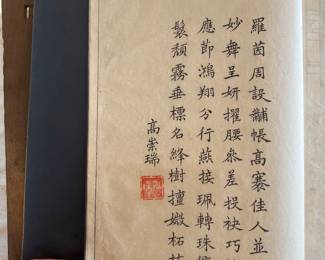 羅茵周設黼帳高褰佳人並
妙舞呈妍擢腰參差投袂巧
應節鴻翔分行燕接珮轉珠
鬟頹霧垂標名絳樹擅媺柘
高崇瑞